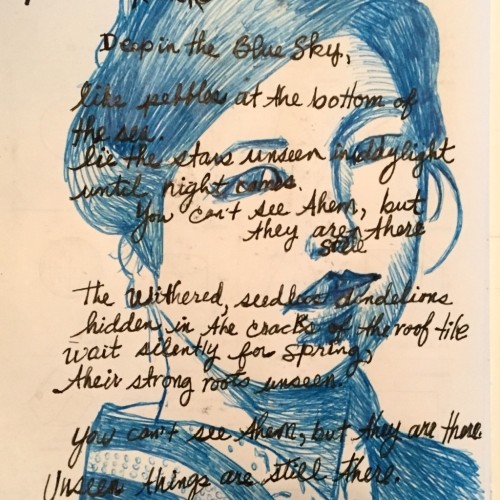 Deep in the Blue Sky,
like pebbles at the bottom of
the sea.
lie the stars unseen in daylight
until night comes.
You can't see them, but
they are there
still
The withered, seedless dandelions
hidden in the cracks of the roof tile
wait silently for spring,
their strong roots unseen.
You can't see them, but they are there.
Unseen things are still there.